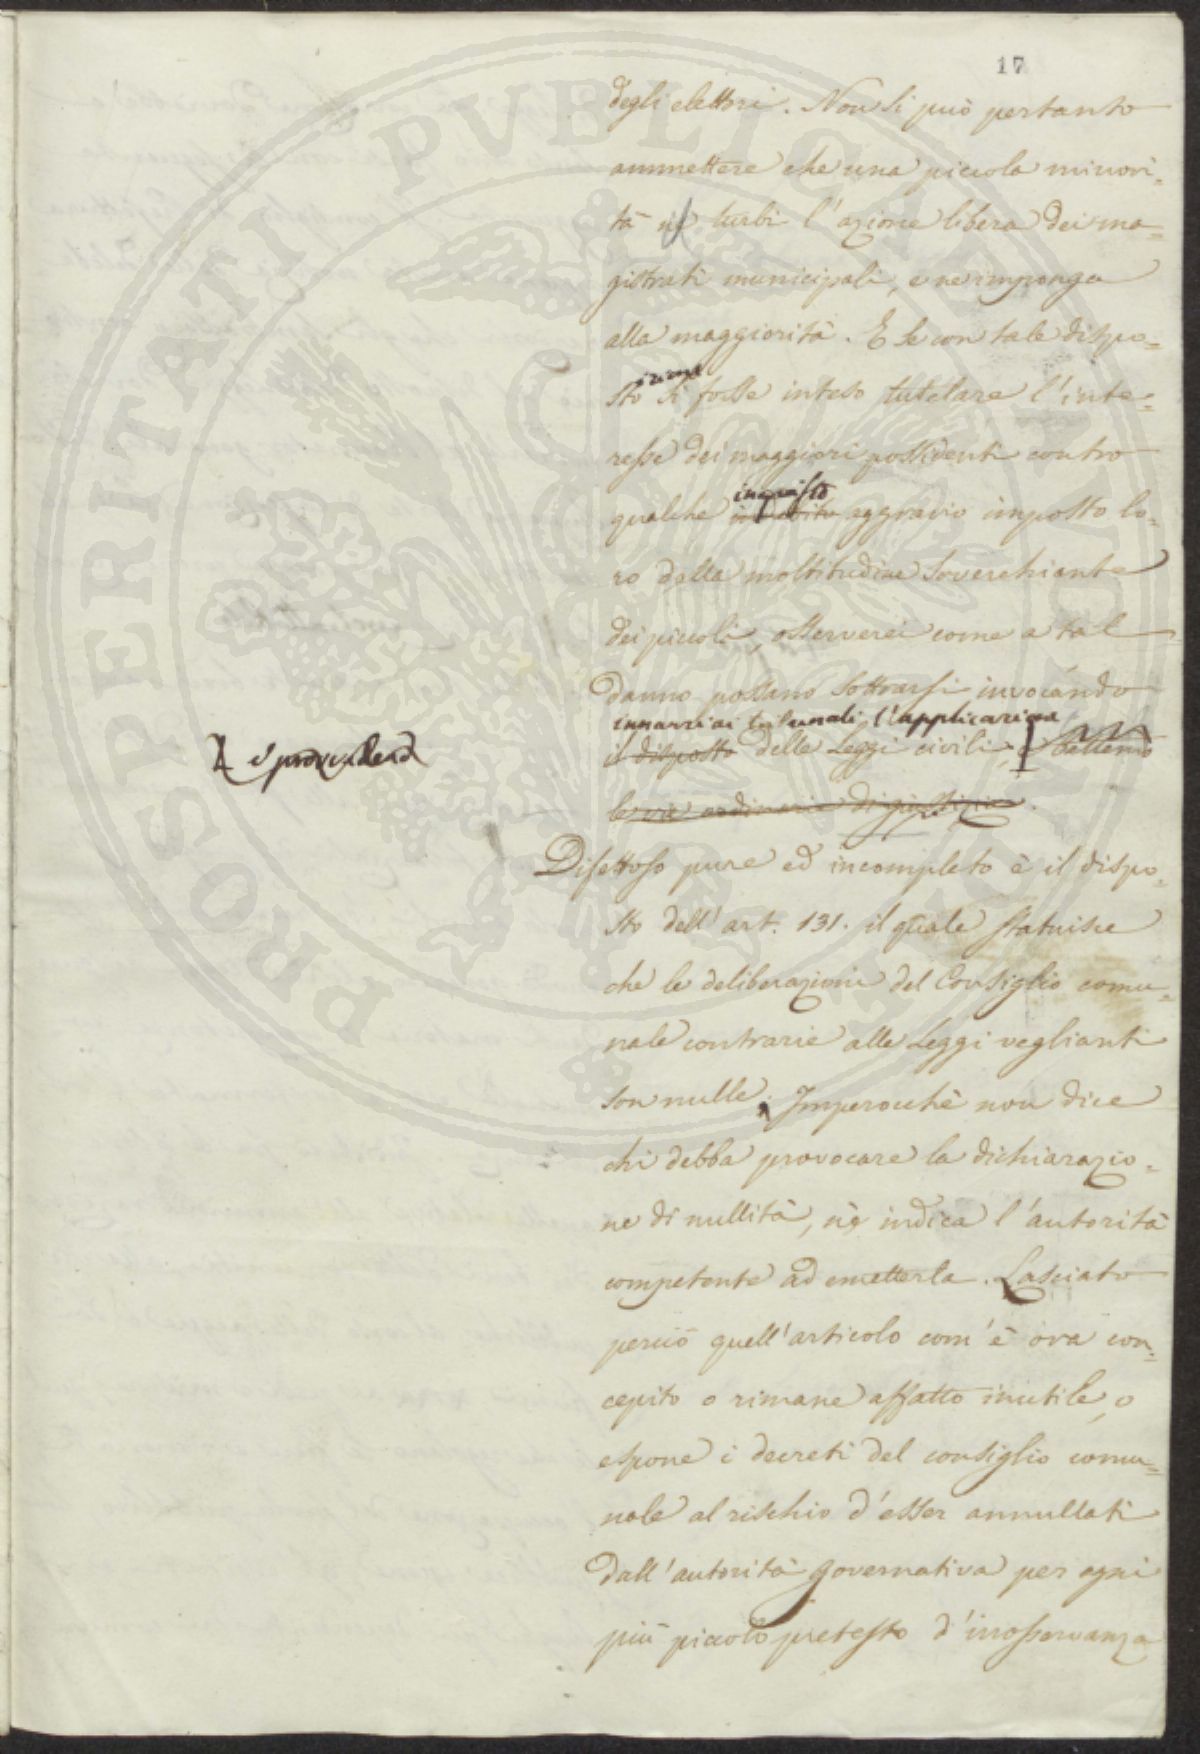 17
degli elettori. Non si può pertanto
ammettere che una piccola minori-
tà turbi l'azione libera dei ma=
gistrati municipali, e ne imponga
alla maggiorità. E se con tale dispo=
sto si fosse inteso tutelare l'inte=
resse dei maggiori possidenti contro
ingiusto
qualche indebito aggravio imposto lo-
ro dalla moltitudine soverchiante
dei piccoli, osserverei come a tal
danno possano sottrarsi invocando
innanzi ai tribunali l'applicazione
il disposto delle Leggi civili, battendo
le vie ordinarie di giustizia.
Difettoso pure ed incompleto è il dispo-
sto dell'art. 131. il quale statuisce
che le deliberazioni del Consiglio comu-
nale contrarie alle Leggi veglianti
son nulle. Imperocchè non dice
chi debba provocare la dichiarazio-
ne di nullità, nè indica l'autorità
competente ad emetterla. Lasciato
perciò quell'articolo com'è ora con=
cepito o rimane affatto inutile, o
espone i decreti del consiglio comu=
nale al rischio d'esser annullati
dall'autorità governativa per ogni
più piccolo pretesto d'inosservanza
PROSPERITATI PUBLICAE